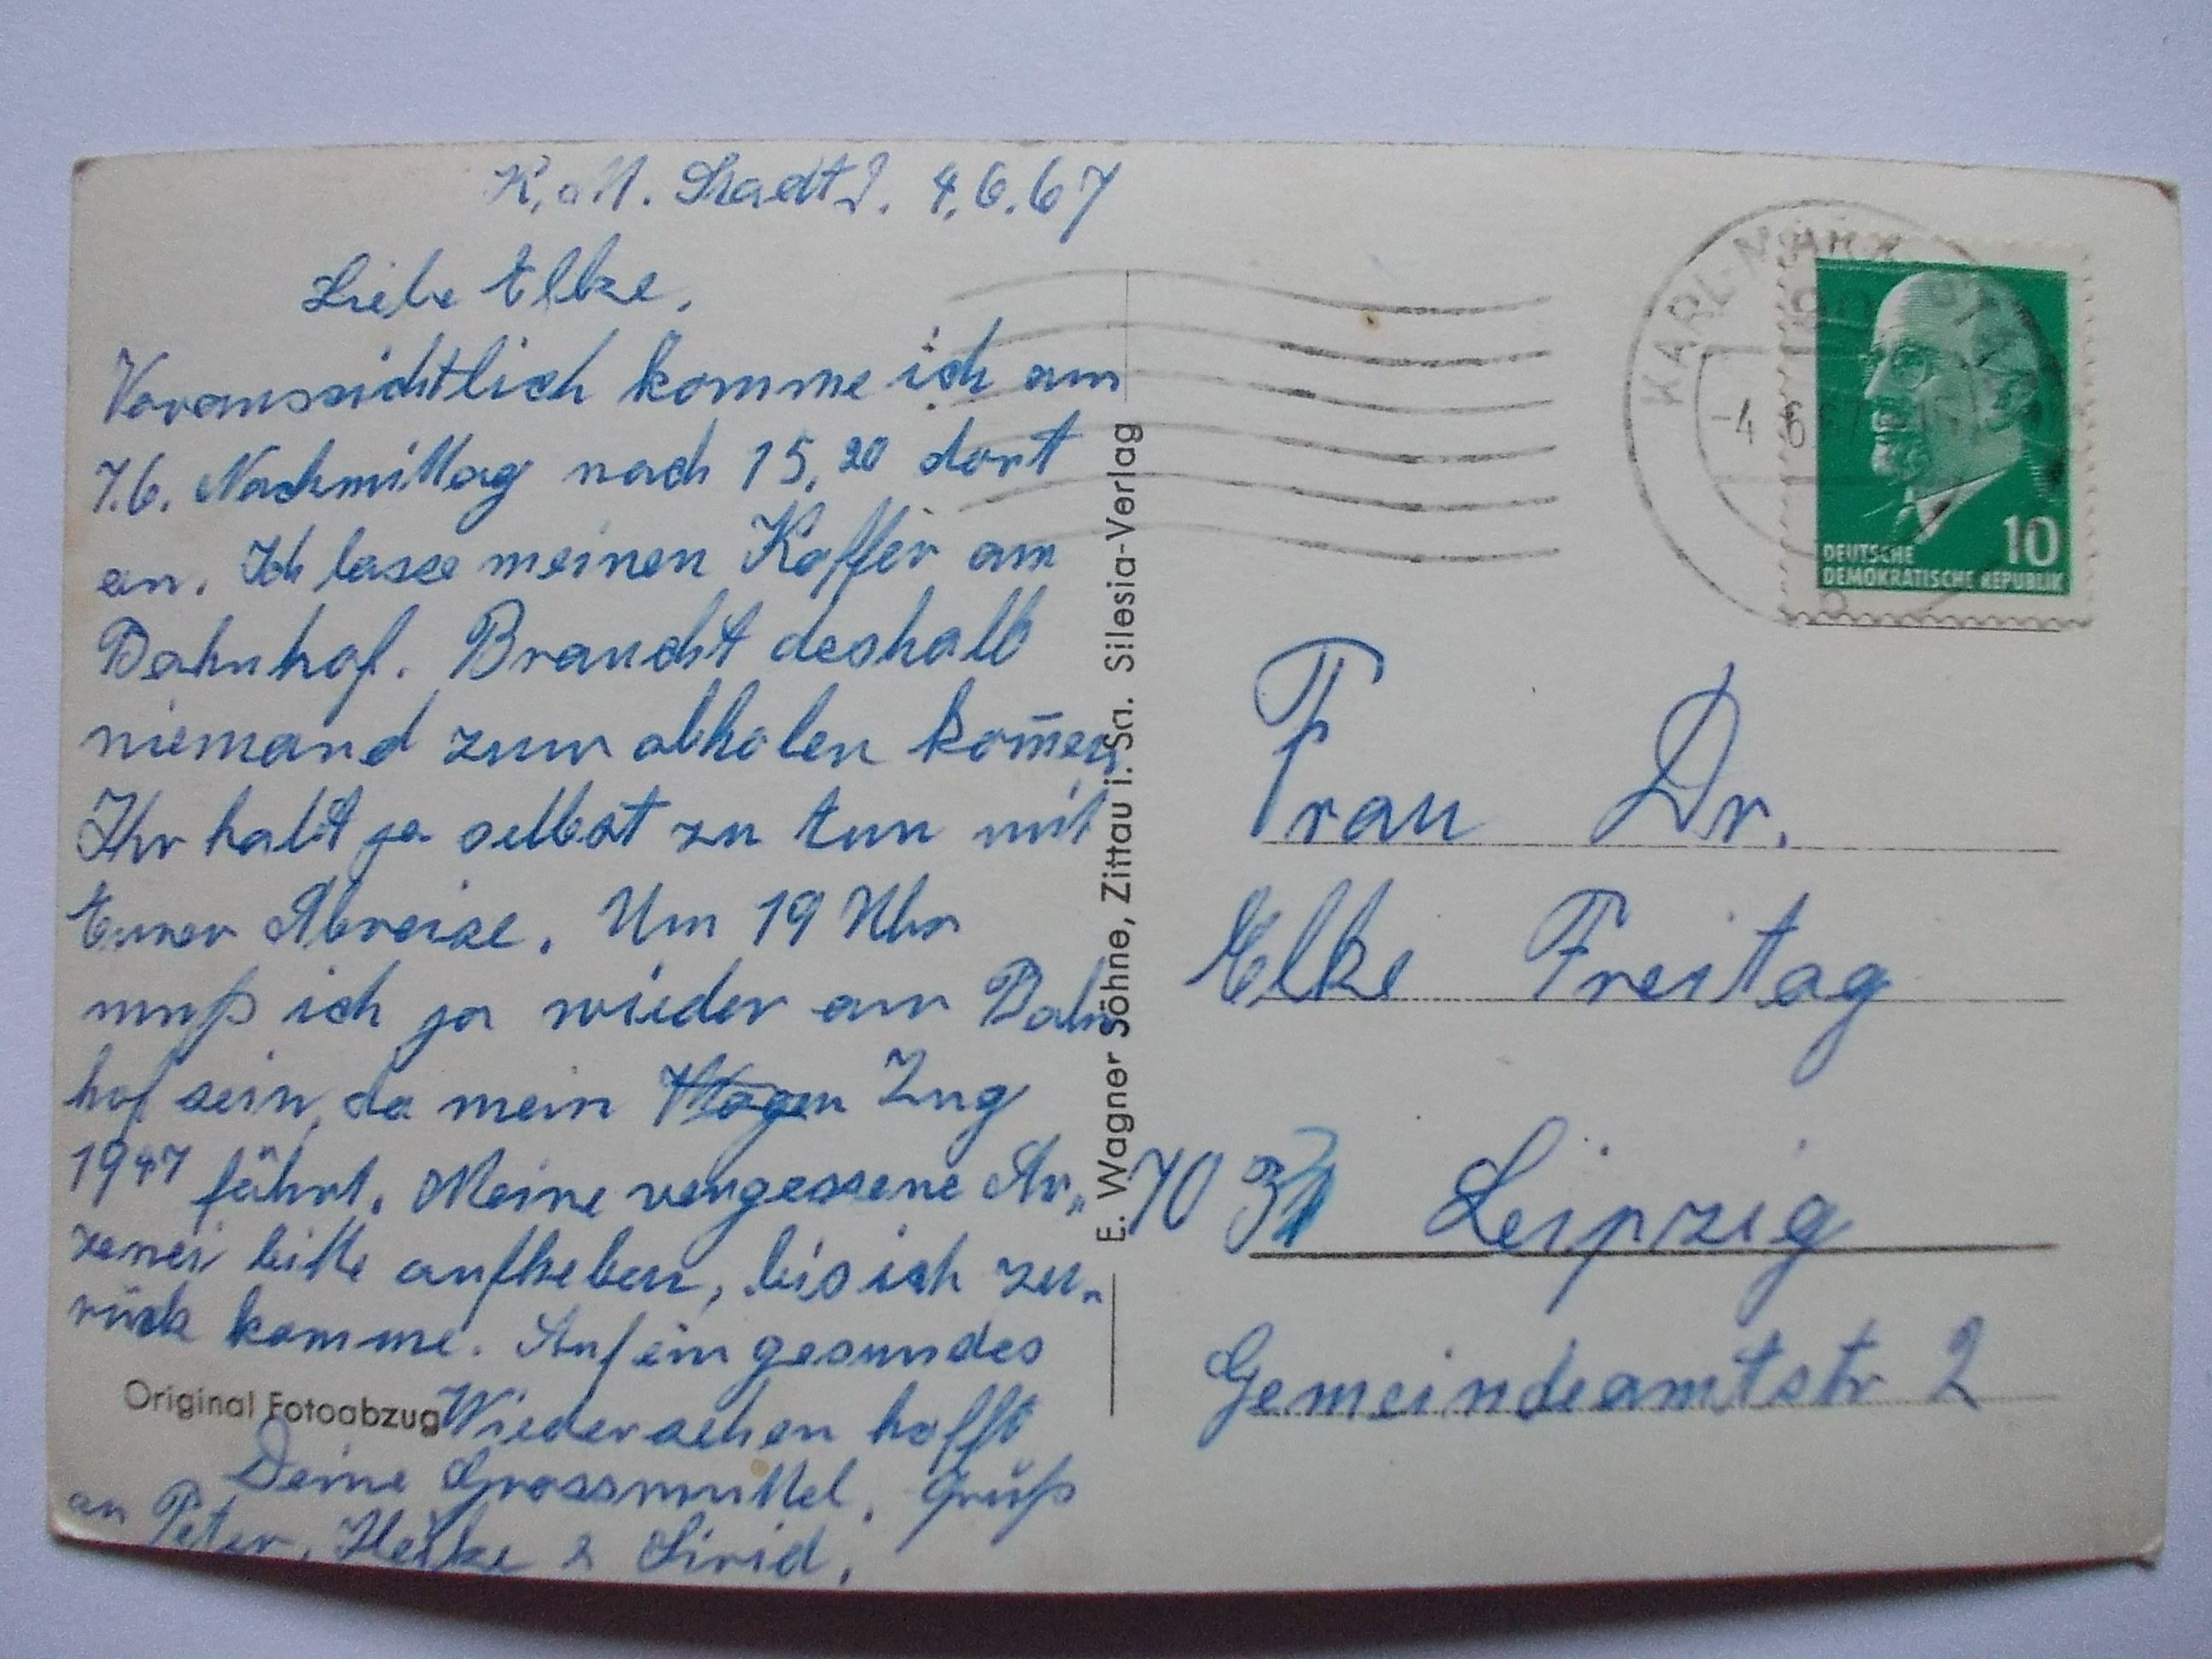 K. M. Stadt 2. 4.6.67
Liebe Elke,
Voraussichtlich komme ich am
7.6. Nachmittag nach 15,20 dort
an. Ich lasse meinen Koffer am
Bahnhof. Braucht deshalb
niemand zum abholen kom̄en
Ihr habt ja selbst zu tun mit
Eurer Abreise. Um 19 Uhr
muß ich ja wieder am Bahn
hof sein, da mein Wagen Zug
19 47 fährt. Meine vergessene Ar„
zenei bitte aufheben, bis ich zu„
rück komme. Auf ein gesundes
Wiedersehen hofft
Deine Grossmuttel. Gruß
an Peter, Heike & Sirid.
Original Fotoabzug
E. Wagner Söhne, Zittau i. Sa. Silesia-Verlag
KARL-MARX-STADT
-4.6.67
10
DEUTSCHE
DEMOKRATISCHE REPUBLIK
Frau Dr.
Elke Freitag
7031 Leipzig
Gemeindeamtstr 2